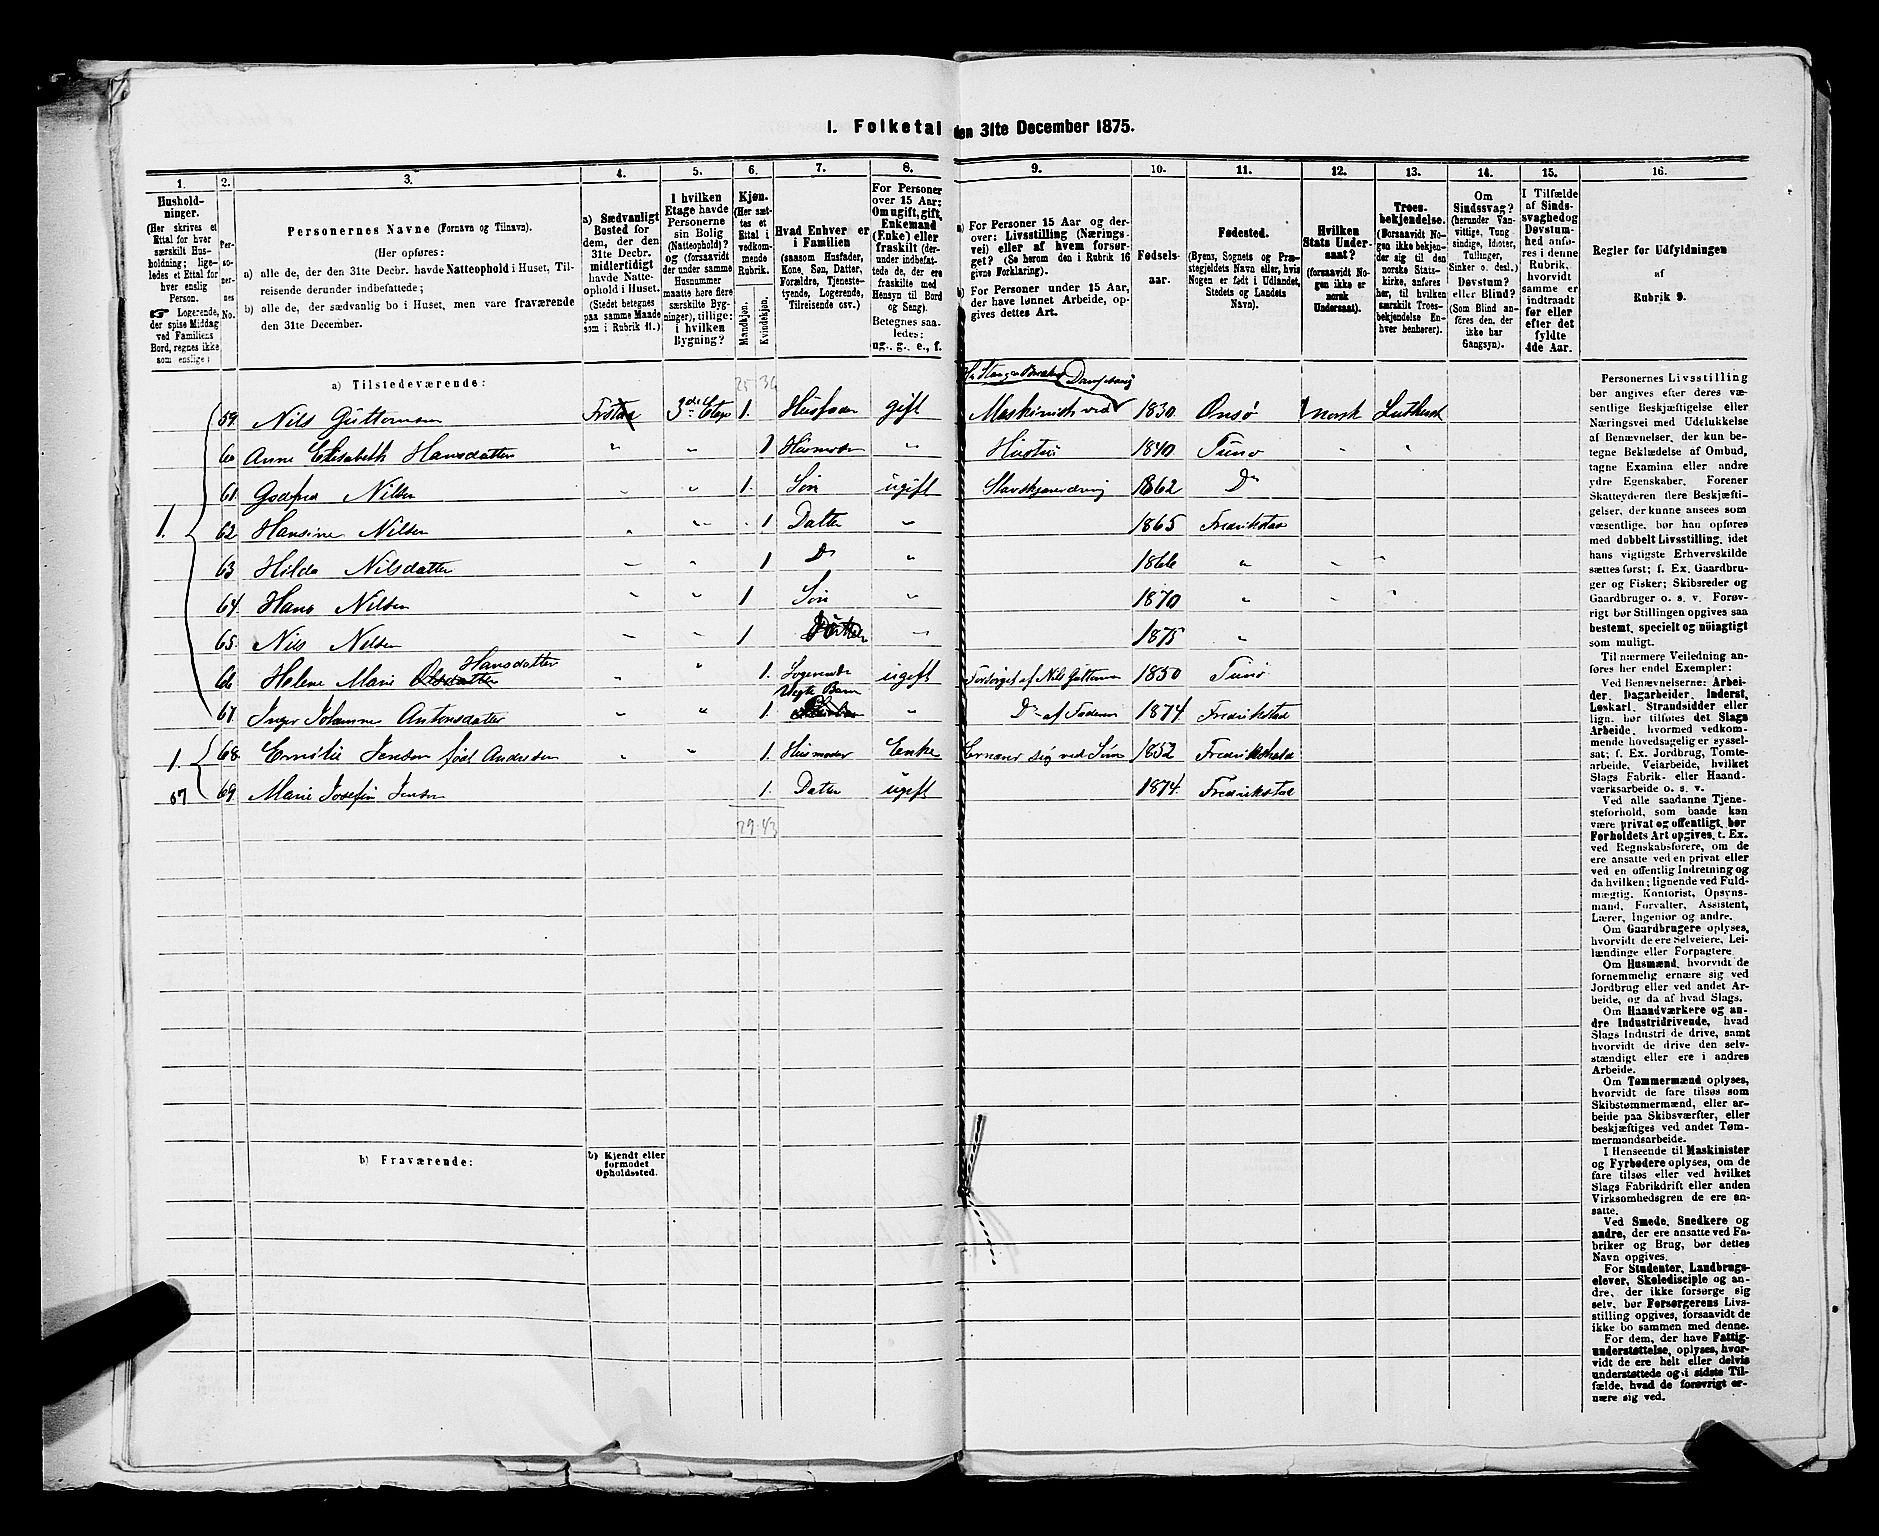 I. Folketal den 31te December 1875.
1. 2. 3. 4. 5. 6. 7. 8. 9. 10. 11. 12. 13. 14. 15. 16.
Husholdninger.
(Her skrives et
Ettal for hver
særskilt Husholdning; ligeledes
et Ettal for
hver enslig
Person.
☞ Logerende,
der spise Middag
ved Familiens
Bord, regnes ikke
som enslige.)
Personernes No.
Personernes Navne (Fornavn og Tilnavn).
(Her opføres:
a) alle de, der den 31te Decbr. havde Natteophold i Huset, Tilreisende
derunder indbefattede;
b) alle de, der sædvanlig bo i Huset, men vare fraværende
den 31te December.
a) Sædvanligt
Bosted for
dem, der den
31te Decbr.
midlertidigt
havde Natteophold
i Huset.
(Stedet betegnes
paa samme Maade
som i Rubrik 11.)
I hvilken
Etage havde
Personerne
sin Bolig
(Natteophold)?
og (forsaavidt
der under samme
Husnummer
maatte høre flere
særskilte Bygninger),
tillige:
i hvilken
Bygning?
Kjøn.
(Her sættes
et
Ettal i
vedkommende
Rubrik.
Mandkjøn.
Kvindekjøn.
Hvad Enhver er
i Familien
(saasom Husfader,
Kone, Søn, Datter,
Forældre, Tjenestetyende,
Logerende,
Tilreisende osv.)
For Personer
over 15 Aar:
Om ugift, gift,
Enkemand
(Enke) eller
fraskilt (derunder
indbefattede
de, der ere
fraskilte med
Hensyn til Bord
og Seng).
Betegnes saaledes:
ug., g., e., f.
a) For Personer 15 Aar og derover:
Livsstilling (Næringsvei)
eller af hvem forsørget?
(Se herom den i Rubrik 16
givne Forklaring).
b) For Personer under 15 Aar,
der have lønnet Arbeide, opgives
dettes Art.
Fødselsaar.
Fødested.
(Byens, Sognets og Præstegjeldets
Navn eller, hvis
Nogen er født i Udlandet,
Stedets og Landets
Navn).
Hvilken
Stats Undersaat?
(forsaavidt Nogen
ikke er
norsk
Undersaat).
Troesbekjendelse.
(Forsaavidt Nogen
ikke bekjender
sig til den
norske Statskirke,
anføres
her, til hvilken
særskilt Troesbekjendelse
Enhver
henhører).
Om
Sindssvag?
(herunder Vanvittige,
Tungsindige,
Idioter,
Tullinger,
Sinker o. desl.)
Døvstum?
eller Blind?
(Som Blind anføres
den, der
ikke har
Gangsyn).
I Tilfælde
af Sindssvaghed
og
Døvstumhed
anføres
i denne
Rubrik,
hvorvidt
samme er
indtraadt
før eller
efter det
fyldte
4de Aar.
Regler for Udfyldningen
af
Rubrik 9.
a) Tilstedeværende:
25 36
Dampsaug
59. Nils Guttormsen 3de Etage 1. Husfader gift Maskinist ved 1830 Onsø norsk Luthersk
60 Anne Elisabeth Hansdatter " " 1 Husmoder " Hustru 1840 Tunø " "
61. Godfred Nilsen " " 1. Søn ugift 1862 Do
1. 62 Hansine Nilsen " " 1 Datter " 1865 Fredrikstad
63 Hilda Nilsdatter " " 1 Do " 1866 " " "
64. Hans Nilsen " " 1 Søn " 1870 " " "
65. Nils Nilsen " " 1 1875 "
66 Helene Marie Hansdatter " " 1. Logerende ugift Forsørget af Nils Guttormsen 1850 Tunø
67. Inger Johanne Antonsdatter " " 1. Uægte Barn " Do af Faderen 1874. Fredrikstad
1. 68. Emilie Jensen født Andersen " " 1. Husmoder Enke Ernærer sig ved Søm 1852 Fredrikshald
07 69. Marie Josefin Jensen 1. Datter ugift 1874. Fredrikstad
29 43
b) Fraværende:
b) Kjendt eller
formodet
Opholdssted.
Personernes Livsstilling
bør angives efter deres væsentlige
Beskjæftigelse eller
Næringsvei med Udelukkelse
af Benævnelser, der kun betegne
Beklædelse af Ombud,
tagne Examina eller andre
ydre Egenskaber. Forener
Skatteyderen flere Beskjæftigelser,
der kunne ansees som
væsentlige, bør han opføres
med dobbelt Livsstilling, idet
hans vigtigste Erhvervskilde
sættes først; f. Ex. Gaardbruger
og Fisker; Skibsreder og
Gaardbruger o. s. v. Forøvrigt
bør Stillingen opgives saa
bestemt, specielt og nöiagtigt
som muligt.
Til nærmere Veiledning anføres
her endel Exempler:
Ved Benævnelserne: Arbeider,
Dagarbeider, Inderst,
Løskarl, Strandsidder eller
lign. bør tilføies det Slags
Arbeide, hvormed vedkommende
hovedsagelig er sysselsat;
f. Ex. Jordbrug, Tomtearbeide,
Veiarbeide, hvilket
Slags Fabrik- eller Haandværksarbeide
o. s. v.
Ved alle saadanne Tjenesteforhold,
som baade kan
være privat og offentligt, bør
Forholdets Art opgives, t. Ex.
ved Regnskabsførere, om de
ere ansatte ved en privat eller
ved en offentlig Indretning og
da hvilken; lignende ved Fuldmægtig,
Kontorist, Opsynsmand,
Forvalter, Assistent,
Lærer, Ingeniør og andre.
Om Gaardbrugere oplyses,
hvorvidt de ere Selveiere, Leilændinge
eller Forpagtere.
Om Husmænd, hvorvidt de
fornemmelig ernære sig ved
Jordbrug eller ved andet Arbeide,
og da af hvad Slags.
Om Haandværkere og andre
Industridrivende, hvad
Slags Industri de drive, samt
hvorvidt de drive den selvstændigt
eller ere i andres
Arbeide.
Om Tømmermænd oplyses,
hvorvidt de fare tilsøs som
Skibstømmermænd, eller arbeide
paa Skibsværfter, eller
beskjæftiges ved andet Tømmermandsarbeide.
I Henseende til Maskinister
og Fyrbødere oplyses, om de
fare tilsøs eller ved hvilket
Slags Fabrikdrift eller anden
Virksomhedsgren de ere ansatte.
Ved Smede, Snedkere og
andre, der ere ansatte ved Fabriker
og Brug, bør dettes
Navn opgives.
For Studenter, Landbrugselever,
Skoledisciple og andre,
der ikke forsørge sig
selv, bør Forsørgerens Livsstilling
opgives, forsaavidt de
ikke bo sammen med denne.
For dem, der have Fattigunderstøttelse,
oplyses, hvorvidt
de ere helt eller delvis
understøttede og i sidste Tilfælde,
hvad de forøvrigt ernære
sig ved.